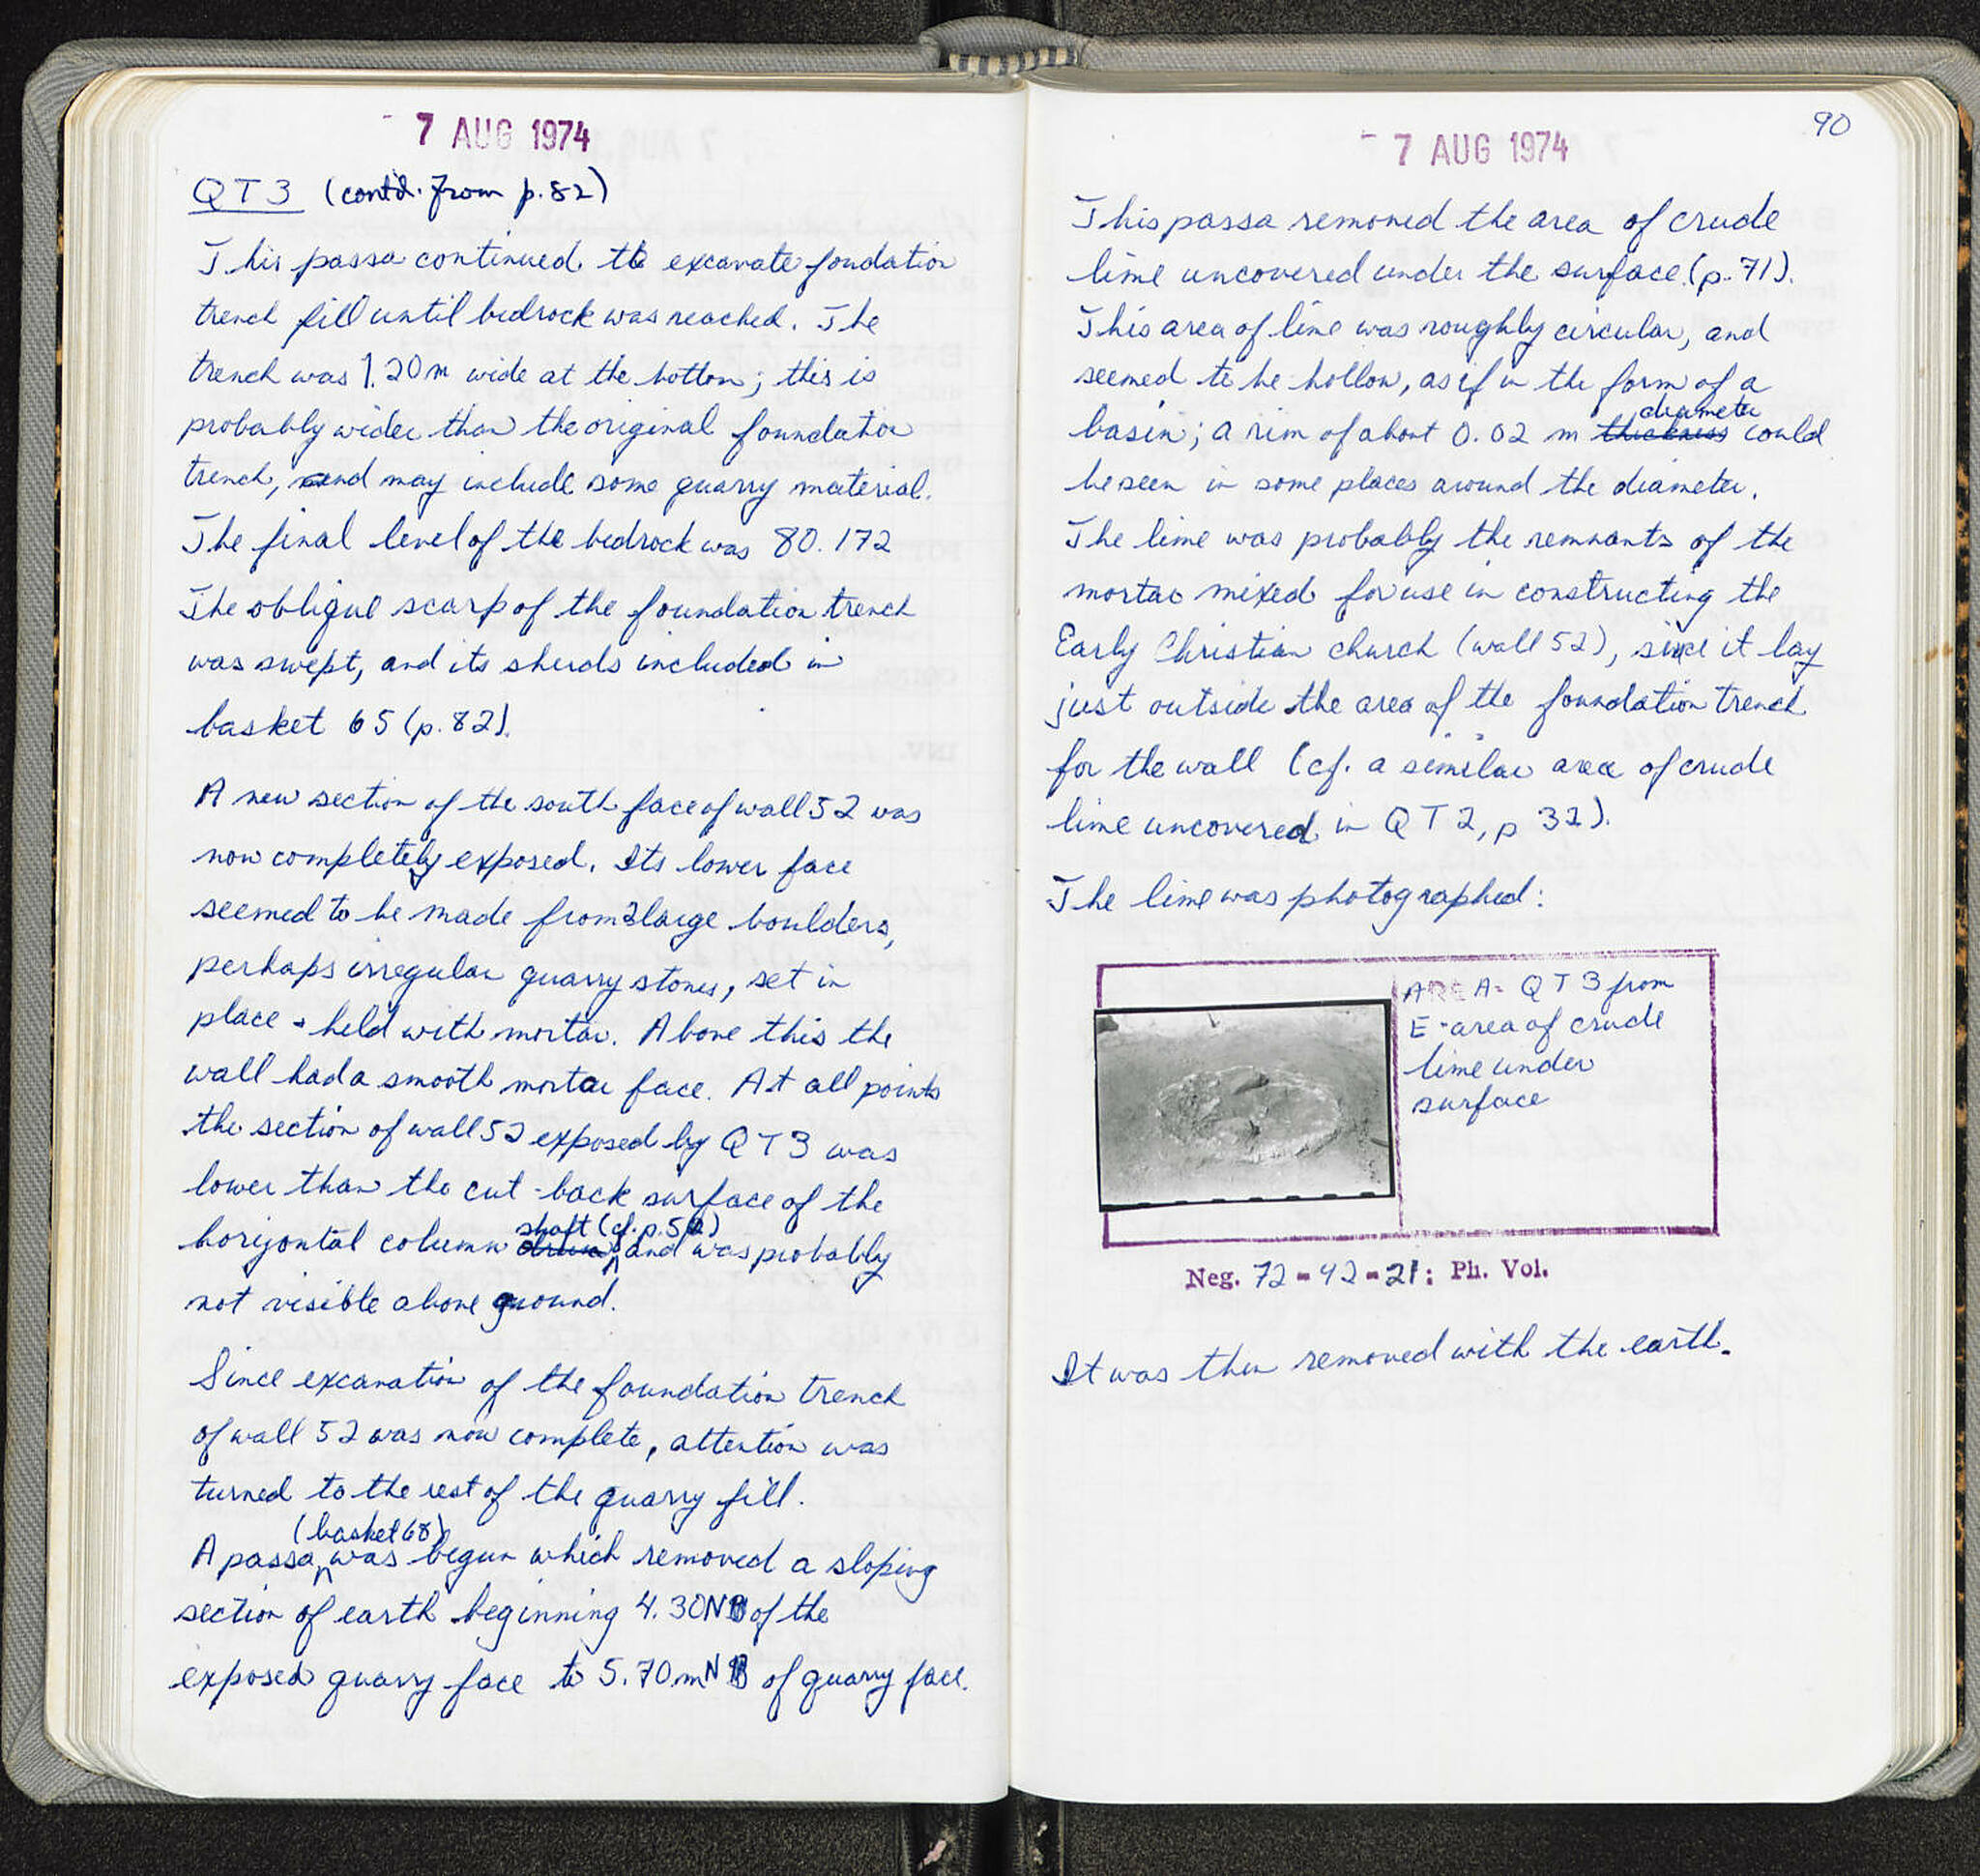 7 AUG 1974
QT3 (cont'd. from p. 82)
This passa continued to excavate foudation
trench fill until bedrock was reached. The
trench was 1.20 m wide at the bottom; this is
probably wider than the original foundation
trench, and may include some quarry material.
The final level of the bedrock was 80.172
The oblique scarp of the foundation trench
was swept, and its sherds included in
basket 65 (p. 82).
A new section of the south face of wall 52 was
now completely exposed. Its lower face
seemed to be made from 2 large boulders,
perhaps irregular quarry stones, set in
place & held with mortar. Above this the
wall had a smooth mortar face. At all points
the section of wall 52 exposed by QT3 was
lower than the cut-back surface of the
horizontal column shaft (cf. p. 52) and was probably
not visible above ground.
Since excavation of the foundation trench
of wall 52 was now complete, attention was
turned to the rest of the quarry fill.
A passa (basket 68) was begun which removed a sloping
section of earth beginning 4.30 N of the
exposed quarry face to 5.70 m N of quarry face.
90
7 AUG 1974
This passa removed the area of crude
lime uncovered under the surface (p. 71).
This area of lime was roughly circular, and
seemed to be hollow, as if in the form of a
basin; a rim of about 0.02 m thickness diameter could
be seen in some places around the diameter.
The lime was probably the remnants of the
mortar mixed for use in constructing the
Early Christian church (wall 52), since it lay
just outside the area of the foundation trench
for the wall (cf. a similar area of crude
lime uncovered in QT2, p 32).
The lime was photographed:
AREA: QT3 from
E - area of crude
lime under
surface
Neg. 72-42-21: Ph. Vol.
It was then removed with the earth.